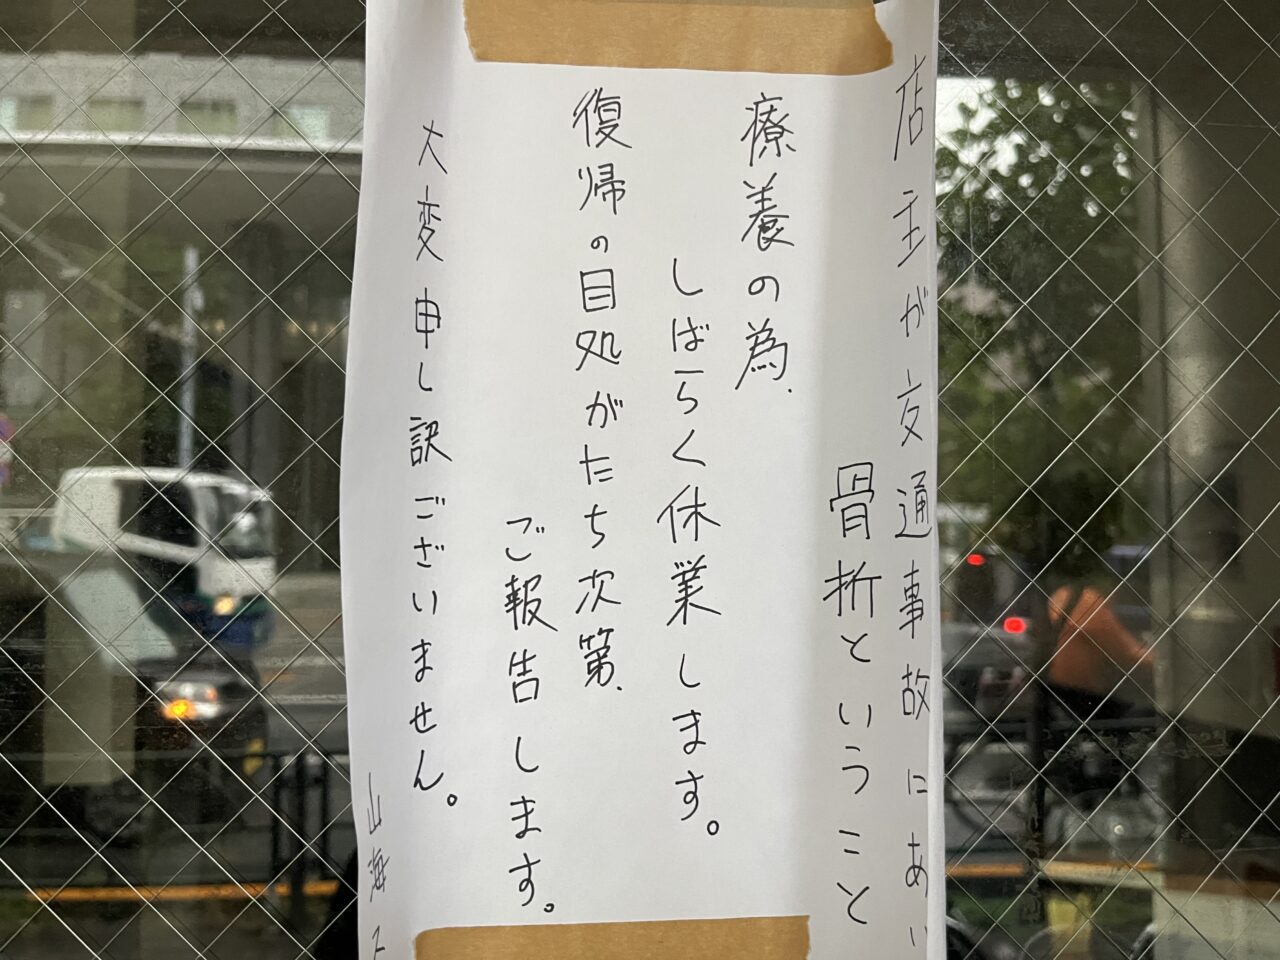 店主が交通事故にあい
骨折ということ
療養の為、
しばらく休業します。
復帰の目処がたち次第、
ご報告します。
大変申し訳ございません。
山海